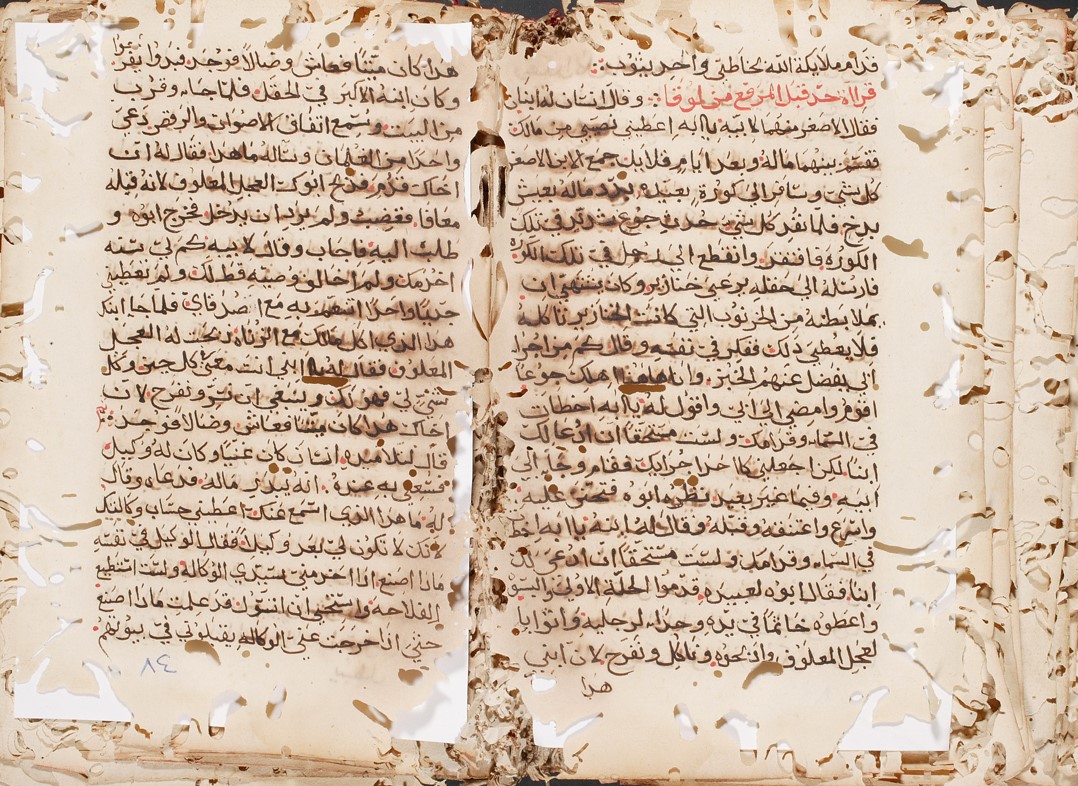 قدام ملايكة الله بخاطي واحد يتوب
قراة حد قبل المرفع من لوقا وقال انسان له ابنان
فقال الاصغر منهما لابيه يا ابه اعطيني نصيبي من مالك
فقسم بينهما ماله وبعد ايام قلايل جمع الابن الاصغر
كل شي وسافر الى كورة بعيدة وبدد ماله بعيش
بدخ فلما نفد كل شي حدث جوع شديد في تلك
الكورة فافتقر وانقطع الى رجل في تلك الكورة
فارسله الى حقله يرعى خنازير وكان يشتهي ان
يملا بطنه من الخرنوب التي كانت الخنازير تاكله
فلا يعطى ذلك ففكر في نفسه وقال كم من اجرا
ابي يفضل عنهم الخبز وانا هاهنا اهلك جوعا
اقوم وامضي الى ابي واقول له يا ابه اخطات
في السما وقدامك ولست مستحقا ان ادعا لك
ابنا لكن اجعلني كاحد اجرايك فقام وجا الى
ابيه وفيما هو بعيد نظره ابوه فتحنن عليه
واسرع واعتنقه وقبله وقال له ابنه يا ابه اخطات
في السماء وقدامك ولست مستحقا ان ادعى لك
ابنا فقال ابوه لعبيده قدموا الحلة الاولى والبسوه
واعطوه خاتما في يده وحذاء لرجليه واتوا با
لعجل المعلوف واذبحوه وناكل ونفرح لان ابني
هدا
هدا كان ميتا فعاش وضالا فوجد فبدوا يفرحوا
وكان ابنه الاكبر في الحقل فلما جاء وقرب
من البيت وسمع اتفاق الاصوات والرقص دعى
واحدا من الغلمان وساله ما هدا فقال له ان
اخاك قدم فدبح ابوك العجل المعلوف لانه قبله
معافا فغضب ولم يرد ان يدخل فخرج ابوه و
طلب اليه فاجاب وقال لابيه كم لي سنه
اخدمك ولم اخالف وصيه قط لك ولم تعطيني
جديا واحدا اتنعم به مع اصدقاي فلما جا ابنك
هدا الدي اكل مالك مع الزناه دبحت له العجل
المعلوف فقال له يا ابني انت معي كل حين وكل
شي لي فهو لك وينبغي ان نسر ونفرح لان
اخاك هدا كان ميتا فعاش وضالا فوجد
قال لتلاميده انسان كان غنيا وكان له وكيل
فسعي به عنده انه يبدر ماله فدعاه وقال
له ما هدا الذي اسمع عنك اعطيني حساب وكالتك
لانك لا تكون لي بعد وكيلا فقال الوكيل في نفسه
ماذا اصنع اذا اخد مني سيدي الوكاله ولست استطيع
الفلاحه واستحي ان اتسول قد علمت ماذا اصنع
حتى اذا خرجت عني الوكاله يقبلوني في بيوتهم
٨٤